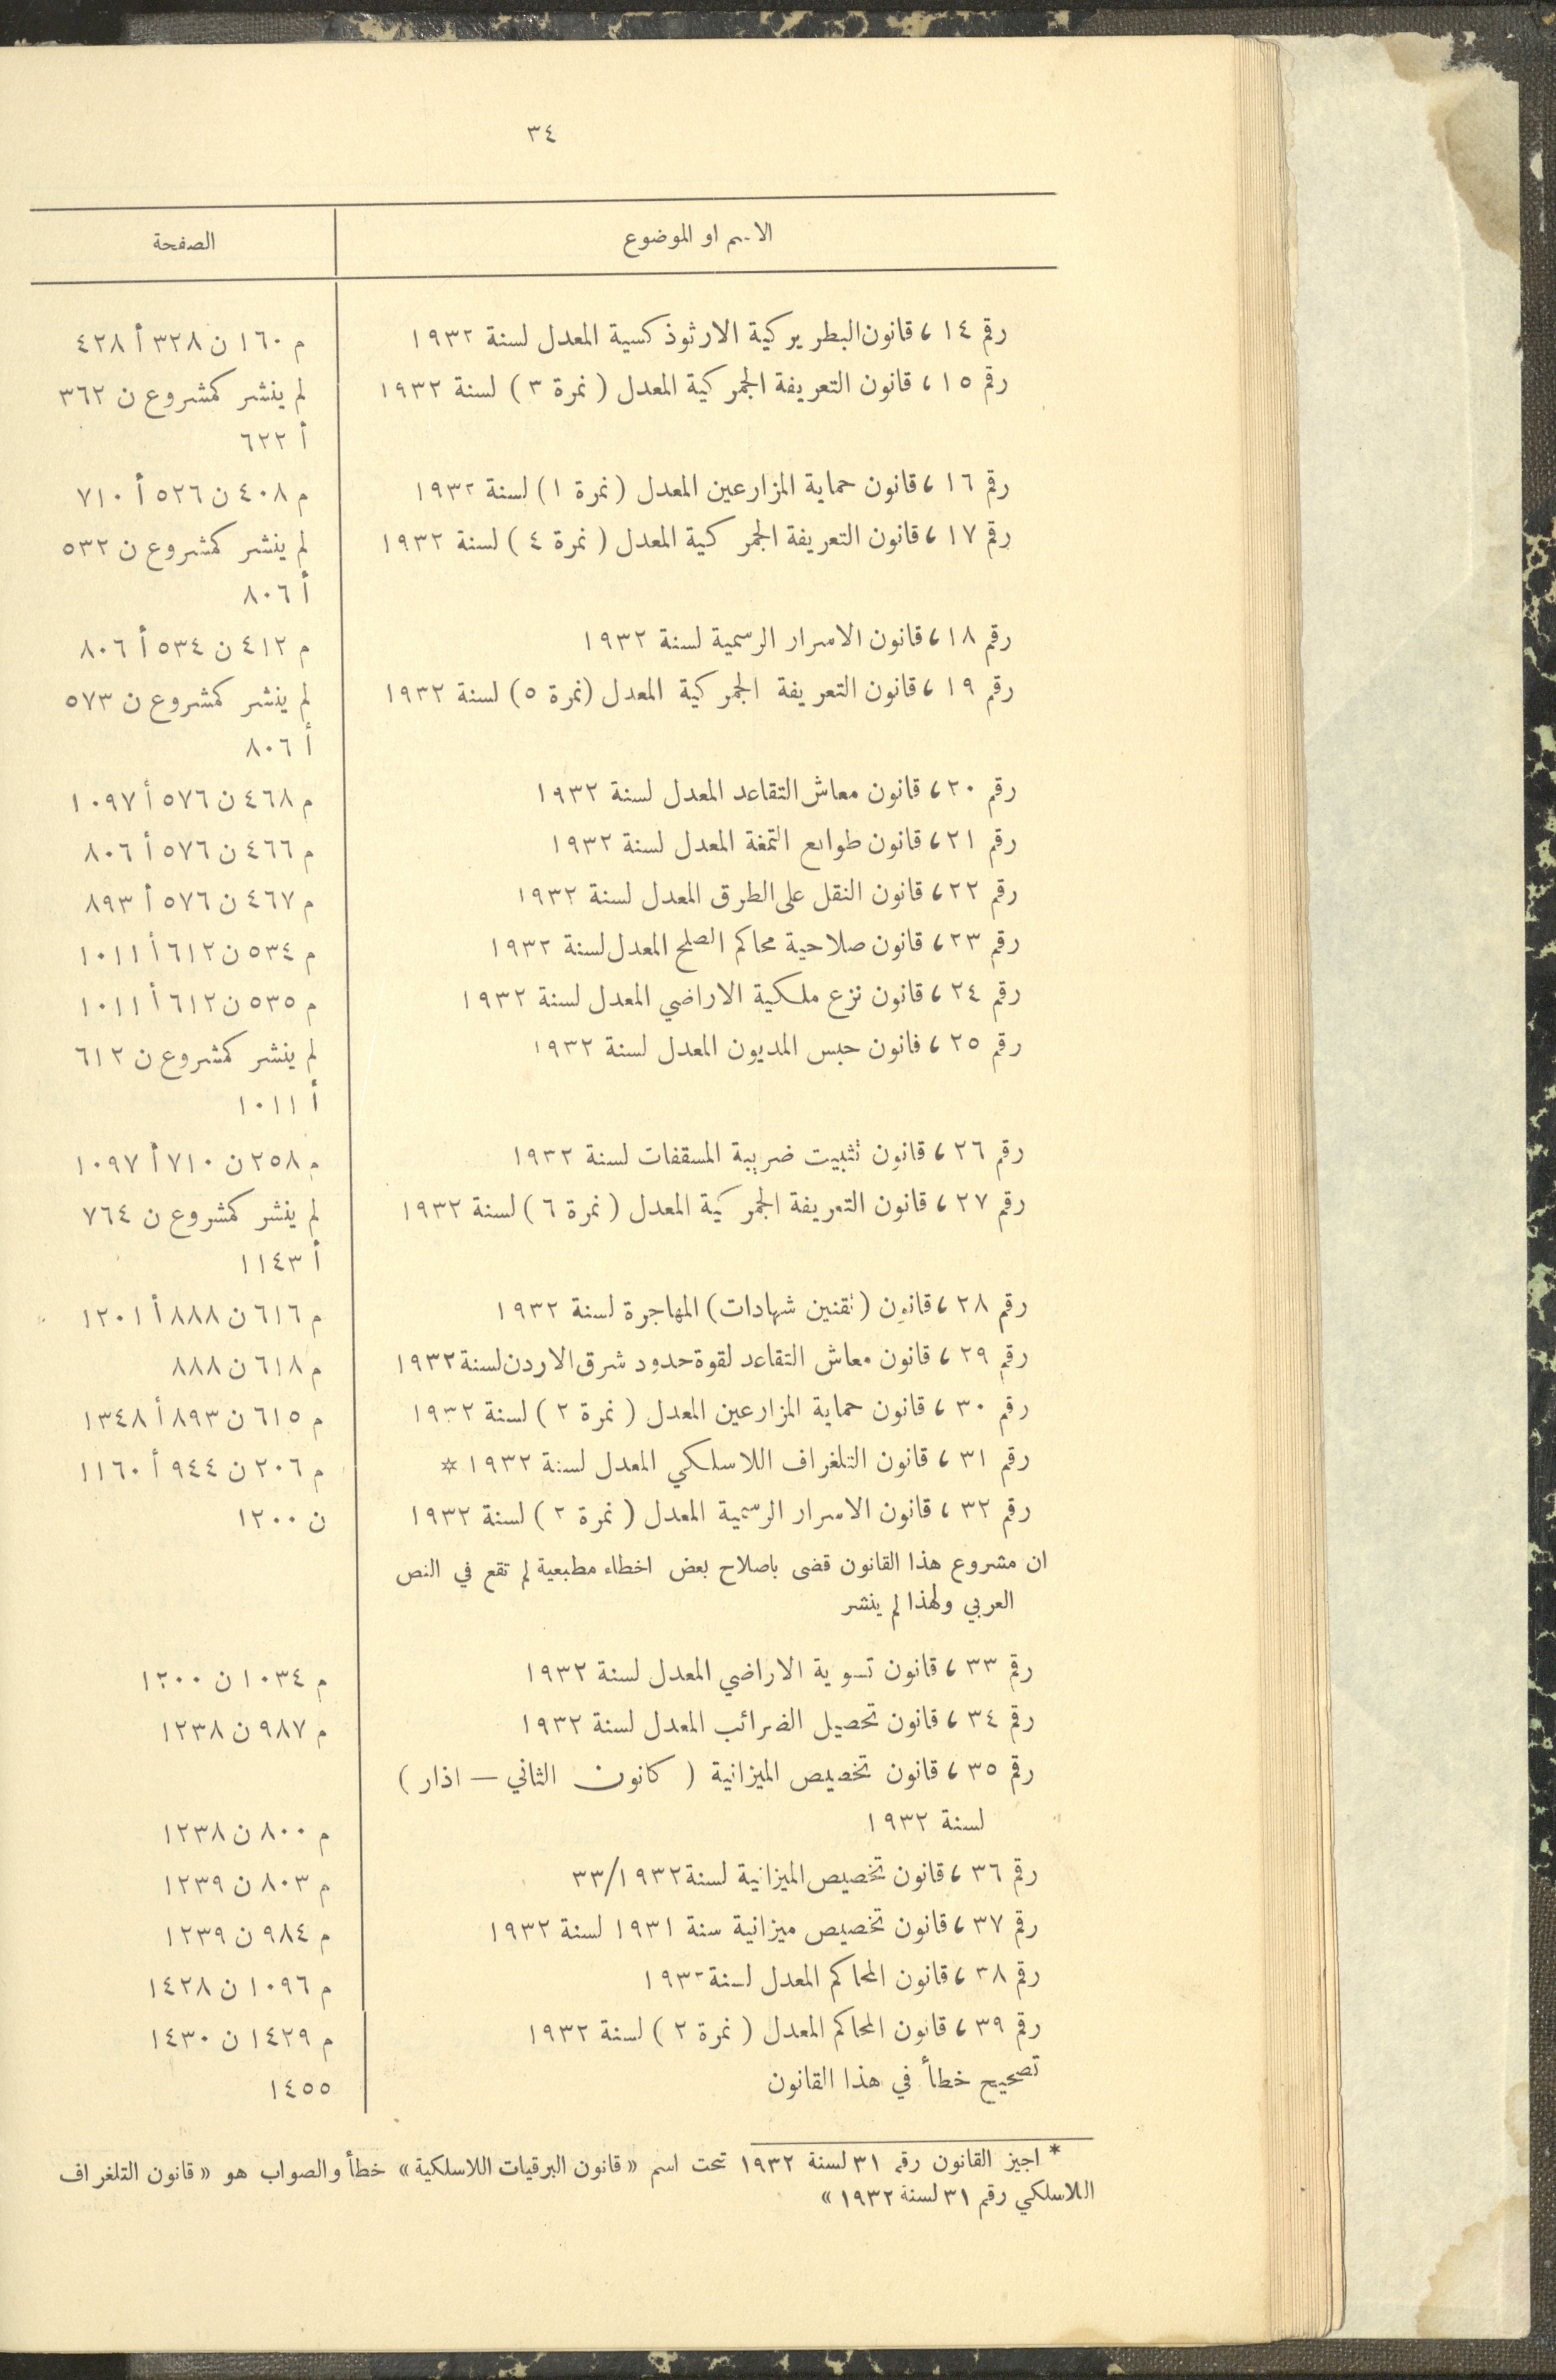 ٣٤
الاسم او الموضوع
الصفحة
رقم ١٤، قانون البطريركية الارثوذكسية المعدل لسنة ١٩٣٢ م ١٦٠ ن ٣٢٨ أ ٤٢٨
رقم ١٥، قانون التعريفة الجمركية المعدل (نمرة ٣) لسنة ١٩٣٢ لم ينشر كمشروع ن ٣٦٢
أ ٦٢٢
رقم ١٦، قانون حماية المزارعين المعدل (نمرة ١) لسنة ١٩٣٢ م ٤٠٨ ن ٥٢٦ أ ٧١٠
رقم ١٧، قانون التعريفة الجمركية المعدل (نمرة ٤) لسنة ١٩٣٢ لم ينشر كمشروع ن ٥٣٢
أ ٨٠٦
رقم ١٨، قانون الاسرار الرسمية لسنة ١٩٣٢ م ٤١٢ ن ٥٣٤ أ ٨٠٦
رقم ١٩، قانون التعريفة الجمركية المعدل (نمرة ٥) لسنة ١٩٣٢ لم ينشر كمشروع ن ٥٧٣
أ ٨٠٦
رقم ٢٠، قانون معاش التقاعد المعدل لسنة ١٩٣٢ م ٤٦٨ ن ٥٧٦ أ ١٠٩٧
رقم ٢١، قانون طوابع التمغة المعدل لسنة ١٩٣٢ م ٤٦٦ ن ٥٧٦ أ ٨٠٦
رقم ٢٢، قانون النقل على الطرق المعدل لسنة ١٩٣٢ م ٤٦٧ ن ٥٧٦ أ ٨٩٣
رقم ٢٣، قانون صلاحية محاكم الصلح المعدل لسنة ١٩٣٢ م ٥٣٤ ن ٦١٢ أ ١٠١١
رقم ٢٤، قانون نزع ملكية الاراضي المعدل لسنة ١٩٣٢ م ٥٣٥ ن ٦١٢ أ ١٠١١
رقم ٢٥، قانون حبس المديون المعدل لسنة ١٩٣٢ لم ينشر كمشروع ن ٦١٢
أ ١٠١١
رقم ٢٦، قانون تثبيت ضريبة المسقفات لسنة ١٩٣٢ م ٢٥٨ ن ٧١٠ أ ١٠٩٧
رقم ٢٧، قانون التعريفة الجمركية المعدل (نمرة ٦) لسنة ١٩٣٢ لم ينشر كمشروع ن ٧٦٤
أ ١١٤٣
رقم ٢٨، قانون (تقنين شهادات) المهاجرة لسنة ١٩٣٢ م ٦١٦ ن ٨٨٨ أ ١٢٠١
رقم ٢٩، قانون معاش التقاعد لقوة حدود شرق الاردن لسنة ١٩٣٢ م ٦١٨ ن ٨٨٨
رقم ٣٠، قانون حماية المزارعين المعدل (نمرة ٢) لسنة ١٩٣٢ م ٦١٥ ن ٨٩٣ أ ١٣٤٨
رقم ٣١، قانون التلغراف اللاسلكي المعدل لسنة ١٩٣٢ * م ٢٠٦ ن ٩٤٤ أ ١١٦٠
رقم ٣٢، قانون الاسرار الرسمية المعدل (نمرة ٢) لسنة ١٩٣٢ ن ١٢٠٠
ان مشروع هذا القانون قضى باصلاح بعض اخطاء مطبعية لم تقع في النص
العربي ولهذا لم ينشر
رقم ٣٣، قانون تسوية الاراضي المعدل لسنة ١٩٣٢ م ١٠٣٤ ن ١٢٠٠
رقم ٣٤، قانون تحصيل الضرائب المعدل لسنة ١٩٣٢ م ٩٨٧ ن ١٢٣٨
رقم ٣٥، قانون تخصيص الميزانية (كانون الثاني — اذار)
لسنة ١٩٣٢ م ٨٠٠ ن ١٢٣٨
رقم ٣٦، قانون تخصيص الميزانية لسنة ٣٣/١٩٣٢ م ٨٠٣ ن ١٢٣٩
رقم ٣٧، قانون تخصيص ميزانية سنة ١٩٣١ لسنة ١٩٣٢ م ٩٨٤ ن ١٢٣٩
رقم ٣٨، قانون المحاكم المعدل لسنة ١٩٣٢ م ١٠٩٦ ن ١٤٢٨
رقم ٣٩، قانون المحاكم المعدل (نمرة ٢) لسنة ١٩٣٢ م ١٤٢٩ ن ١٤٣٠
تصحيح خطأ في هذا القانون ١٤٥٥
* اجيز القانون رقم ٣١ لسنة ١٩٣٢ تحت اسم «قانون البرقيات اللاسلكية» خطأ والصواب هو «قانون التلغراف
اللاسلكي رقم ٣١ لسنة ١٩٣٢»